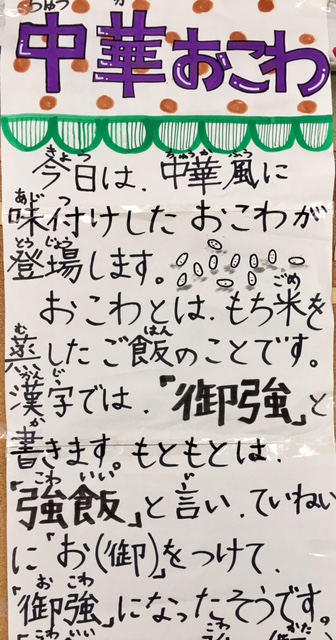 ちゅう か
中華おこわ
きょう ちゅうかふう
今日は、中華風に
あじつ
味付けした おこわが
とうじょう
登場します。
ごめ
おこわとは、もち米を
む はん
蒸したご飯のことです。
かんじ
漢字では、「御強」と
か
書きます。もともとは、
こわ いい い
「強飯」と言い、ていねい
に「お(御)」をつけて、
お こわ
「御強」になったそうです。